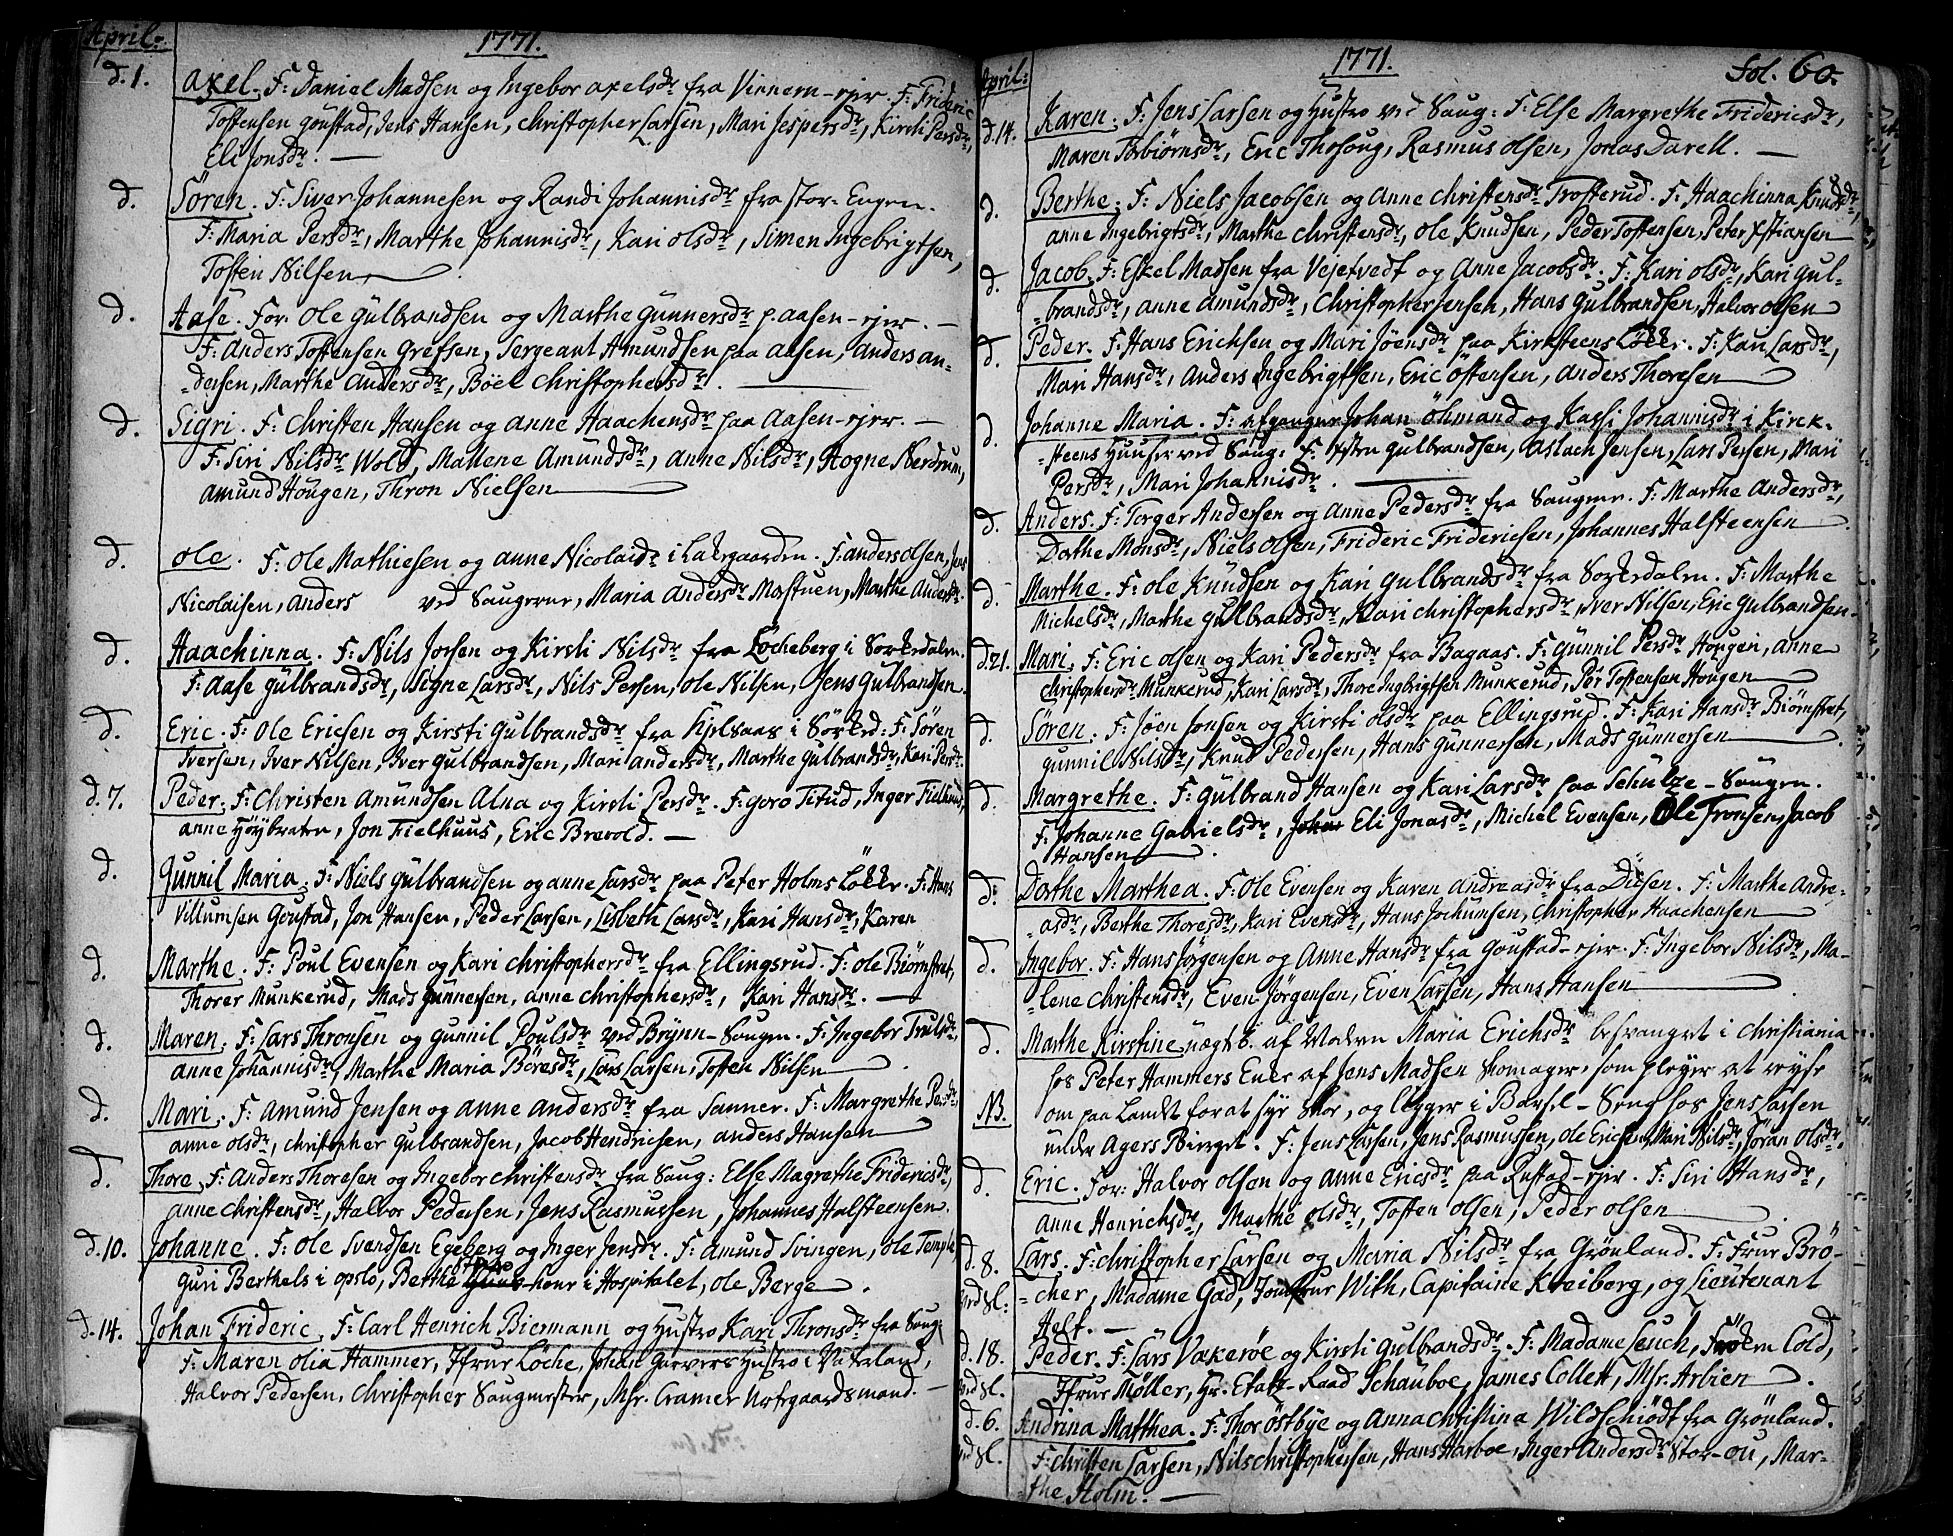 April: 1771.
d. 1. Axel. F: Daniel Madsen og Ingebor Axelsdr fra Vinnern-ejer. F: Frideric
Tostensen Goustad, Jens Hansen, Christopher Larsen, Mari Jespersdr, Kirsti Persdr,
Eli Jonsdr. —
d. Sören. F: Siver Johannesen og Randi Johannisdr fra Stor-Engen.
F: Maria Persdr, Marthe Johannisdr, Kari Olsdr, Simen Ingebrigtsen,
Tosten Nilsen
d. Aase. For. Ole Gulbrandsen og Marthe Gunnersdr p. Aasen-ejer. —
F: Anders Tostensen Grefsen, Sergeant Amundsen paa Aasen, Anders An-
-dersen, Marthe Andersdr, Böel Christophersdr.
d. Sigri. F: Christen Hansen og Anne Haachensdr paa Aasen-ejer. —
F: Siri Nilsdr Wold, Mallene Amundsdr, Anne Nilsdr, Hogne Nerdrum,
Amund Hougen, Thron Nielsen
d. Ole. F: Ole Mathiesen og Anne Nicolaidr i Lakegaarden. F: Anders Olsen, Jens
Nicolaisen, Anders ved Saugerne, Maria Andersdr Mastuen, Marthe Andersdr
d. Haachinna. F: Nils Joesen og Kirsti Nilsdr fra Löcheberg i Sorkedalen.
F: Aase Gulbrandsdr, Signe Larsdr, Nils Persen, Ole Nilsen, Jens Gulbrandsen.
d. Eric. F: Ole Ericsen og Kirsti Gulbrandsdr fra Kjelsaas i Sörked. F: Sören
Iversen, Iver Nilsen, Iver Gulbrandsen, Mari Andersdr, Marthe Gulbrandsdr, Kari Persdr
d. 7. Peder. F: Christen Amundsen Alna og Kirsti Persdr. F: Goro Titud, Inger Fielhuus,
Anne Höybraten, Jon Fielhuus, Eric Brevold. —
d. Gunnil Maria. F: Niels Gulbrandsen og Anne Larsdr paa Peter Holms Lökke. F: Hans
Villumsen Goustad, Jon Hansen, Peder Larsen, Lisbeth Larsdr, Kari Hansdr, Karen
d. Marthe. F: Poul Evensen og Kari Christophersdr fra Ellingsrud. F: Ole Biörnstret,
Thorer Munkerud, Mads Gunnersen, Anne Christophersdr, Kari Hansdr. —
d. Maren. F: Lars Thronsen og Gunnil Poulsdr ved Brÿnn-Saugen. F: Ingebor Trulsdr,
Anne Johannisdr, Marthe Maria Böresdr, Lars Larsen, Tosten Nilsen
d. Mari. F: Amund Jensen og Anne Andersdr fra Sanner. F: Margrethe Persdr,
Anne Olsdr, Christopher Gulbrandsen, Jacob Hendrichsen, Anders Hansen
d. Thore. F: Anders Thoresen og Ingebor Christensdr fra Saug: Else Magrethe Fridericsdr,
Anne Christensdr, Halvor Pedersen, Jens Rasmussen, Johannes Halsteensen.
d. 10. Johanne. F: Ole Svendsen Egeberg og Inger Jensdr. F: Amund Svingen, Ole Temple,
Guri Berthels i Opslo, Berthe kone i Hospitalet, Ole Berge.
d. 14. Johan Frideric. F: Carl Henrich Biermann og Hustro Kari Thronsdr fra Saug
F: Maren Olia Hammer, Jfrue Löche, Johan Garvers Hustro i Vaterland,
Halvor Pedersen, Christopher Saugmester, Msr. Cramer Nefegaardsmand. —
April: 1771. Fol. 60.
d. 14. Karen. F: Jens Larsen og Hustro ved Saug: F: Else Margrethe Fridericsdr,
Maren Torbiörnsdr, Eric Thosoug, Rasmus Olsen, Jonas Darell. —
d. Berthe. F: Niels Jacobsen og Anne Christensdr Trosterud. F: Haachinna Knudsdr,
Anne Ingebrigtsdr, Marthe Christensdr, Ole Knudsen, Peder Tostensen, Peter Xstiansen
d. Jacob. F: Eskel Madsen fra Vejetvedt og Anne Jacobsdr. F: Kari Olsdr, Kari Gul-
-brandsdr, Anne Amundsdr, Christopher Jensen, Hans Gulbrandsen, Halvor Olsen
d. Peder. F: Hans Erichsen og Mari Jöensdr paa Kirksteens Lökke. F: Kari Larsdr,
Mari Hansdr, Anders Ingebrigtsen, Eric Östensen, Anders Thoresen
d Johanne Maria. F: Afganger Johan Öhmand og Kassi Johannisdr i Kirck-
-steens Huuser ved Saug: F: Gulbrandsen, Aslach Jensen, Lars Persen, Mari
Persdr, Mari Johannisdr.
d. Anders. F: Torger Andersen og Anne Pedersdr fra Saugene. F: Marthe Andersdr,
Dorthe Monsdr, Niels Olsen, Frideric Fridericsen, Johannes Halsteensen
d. Marthe. F: Ole Knudsen og Kari Gulbrandsdr fra Sorkedalen. F: Marthe
Michelsdr, Marthe Gulbrandsdr, Kari Christophersdr, Iver Nilsen, Eric Gulbrandsen.
d. 21. Mari. F: Eric Olsen og Kari Pedersdr fra Bagaas. F: Gunnil Persdr Hougen, Anne
Christophersdr Munkerud, Kari Larsdr, Thore Ingbrigtsen Munkerud, Per Tostensen Hougen
d. Sören. F: Jöen Jonsen og Kirsti Olsdr paa Ellingsrud. F: Kari Hansdr Biörnstret,
Gunnil Nilsdr, Knud Pedersen, Hans Gunnersen, Mads Gunnersen
d. Margrethe. F: Gulbrand Hansen og Kari Larsdr paa Schultze-Saugen.
F: Johanne Gabrielsdr, Eli Jonasdr, Michel Evensen, Ole Tronsen, Jacob
Hansen
d. Dorthe Marthea. F: Ole Evensen og Karen Andreasdr fra Disen. F: Marthe Andre-
-asdr, Berthe Thoresdr, Kari Evensdr, Hans Jochumsen, Christopher Haachensen
d. Ingebor. F: Hans Jörgensen og Anne Hansdr fra Goustad-ejer. F: Ingebor Nilsdr, Ma-
lene Christensdr, Even Jörgensen, Even Larsen, Hans Hansen
d. Marthe Kirstine, uægte b. af Moderen Maria Erichsdr besvanget i Christiania
hos Peter Hammers Enke af Jens Madsen Skomager, som pleyer at reyse
NB. om paa Landet for at sye Skoe, og legger i Barsel-Seng hos Jens Larsen
under Agers Bierget. F: Jens Larsen, Jens Rasmussen, Ole Ericsen, Mari Nilsdr, Söran Olsdr.
d. Eric. For: Halvor Olsen og Anne Ericsdr paa Rustad-ejer. F: Siri Hansdr,
Anne Henrichsdr, Marthe Olsdr, Tosten Olsen, Peder Olsen
d. 8. Lars. F: Christopher Larsen og Maria Nilsdr fra Grönland. F: Frue Brö-
ved Sl: -cher, Madame Gad, Jomfrue With, Capitaine Kreiberg, og Lieutenant
Holst. —
d. 18. Peder. F: Lars Vækeröe og Kirsti Gulbrandsdr. F: Madame Leuch, Cold,
ved Sl. Jfrue Möller, Hr. Etatz-Raad Schauboe, James Collett, Msr. Arbien
d. 6. Andrina Matthea. F: Thor Östbye og Anna Christina Wildschiödt fra Grönland.
ved Sl. F: Christen Larsen, Nils Christophersen, Hans Harboe, Inger Andersdr Stor-Ou, Mar-
-the Holm. —